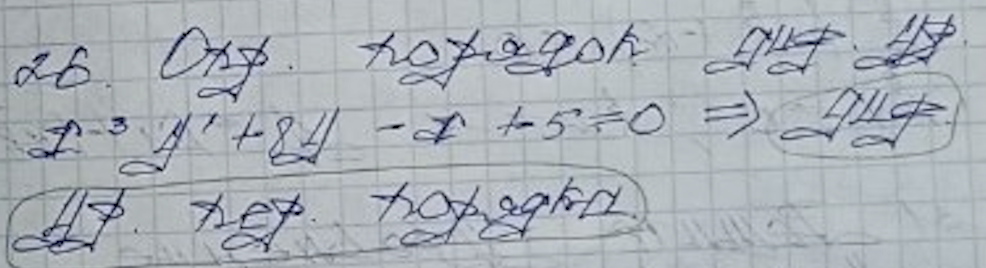 26. Опр. порядок диф. ур.
x³ y' + 8y - x + 5 = 0 => диф.
ур. пер. порядка